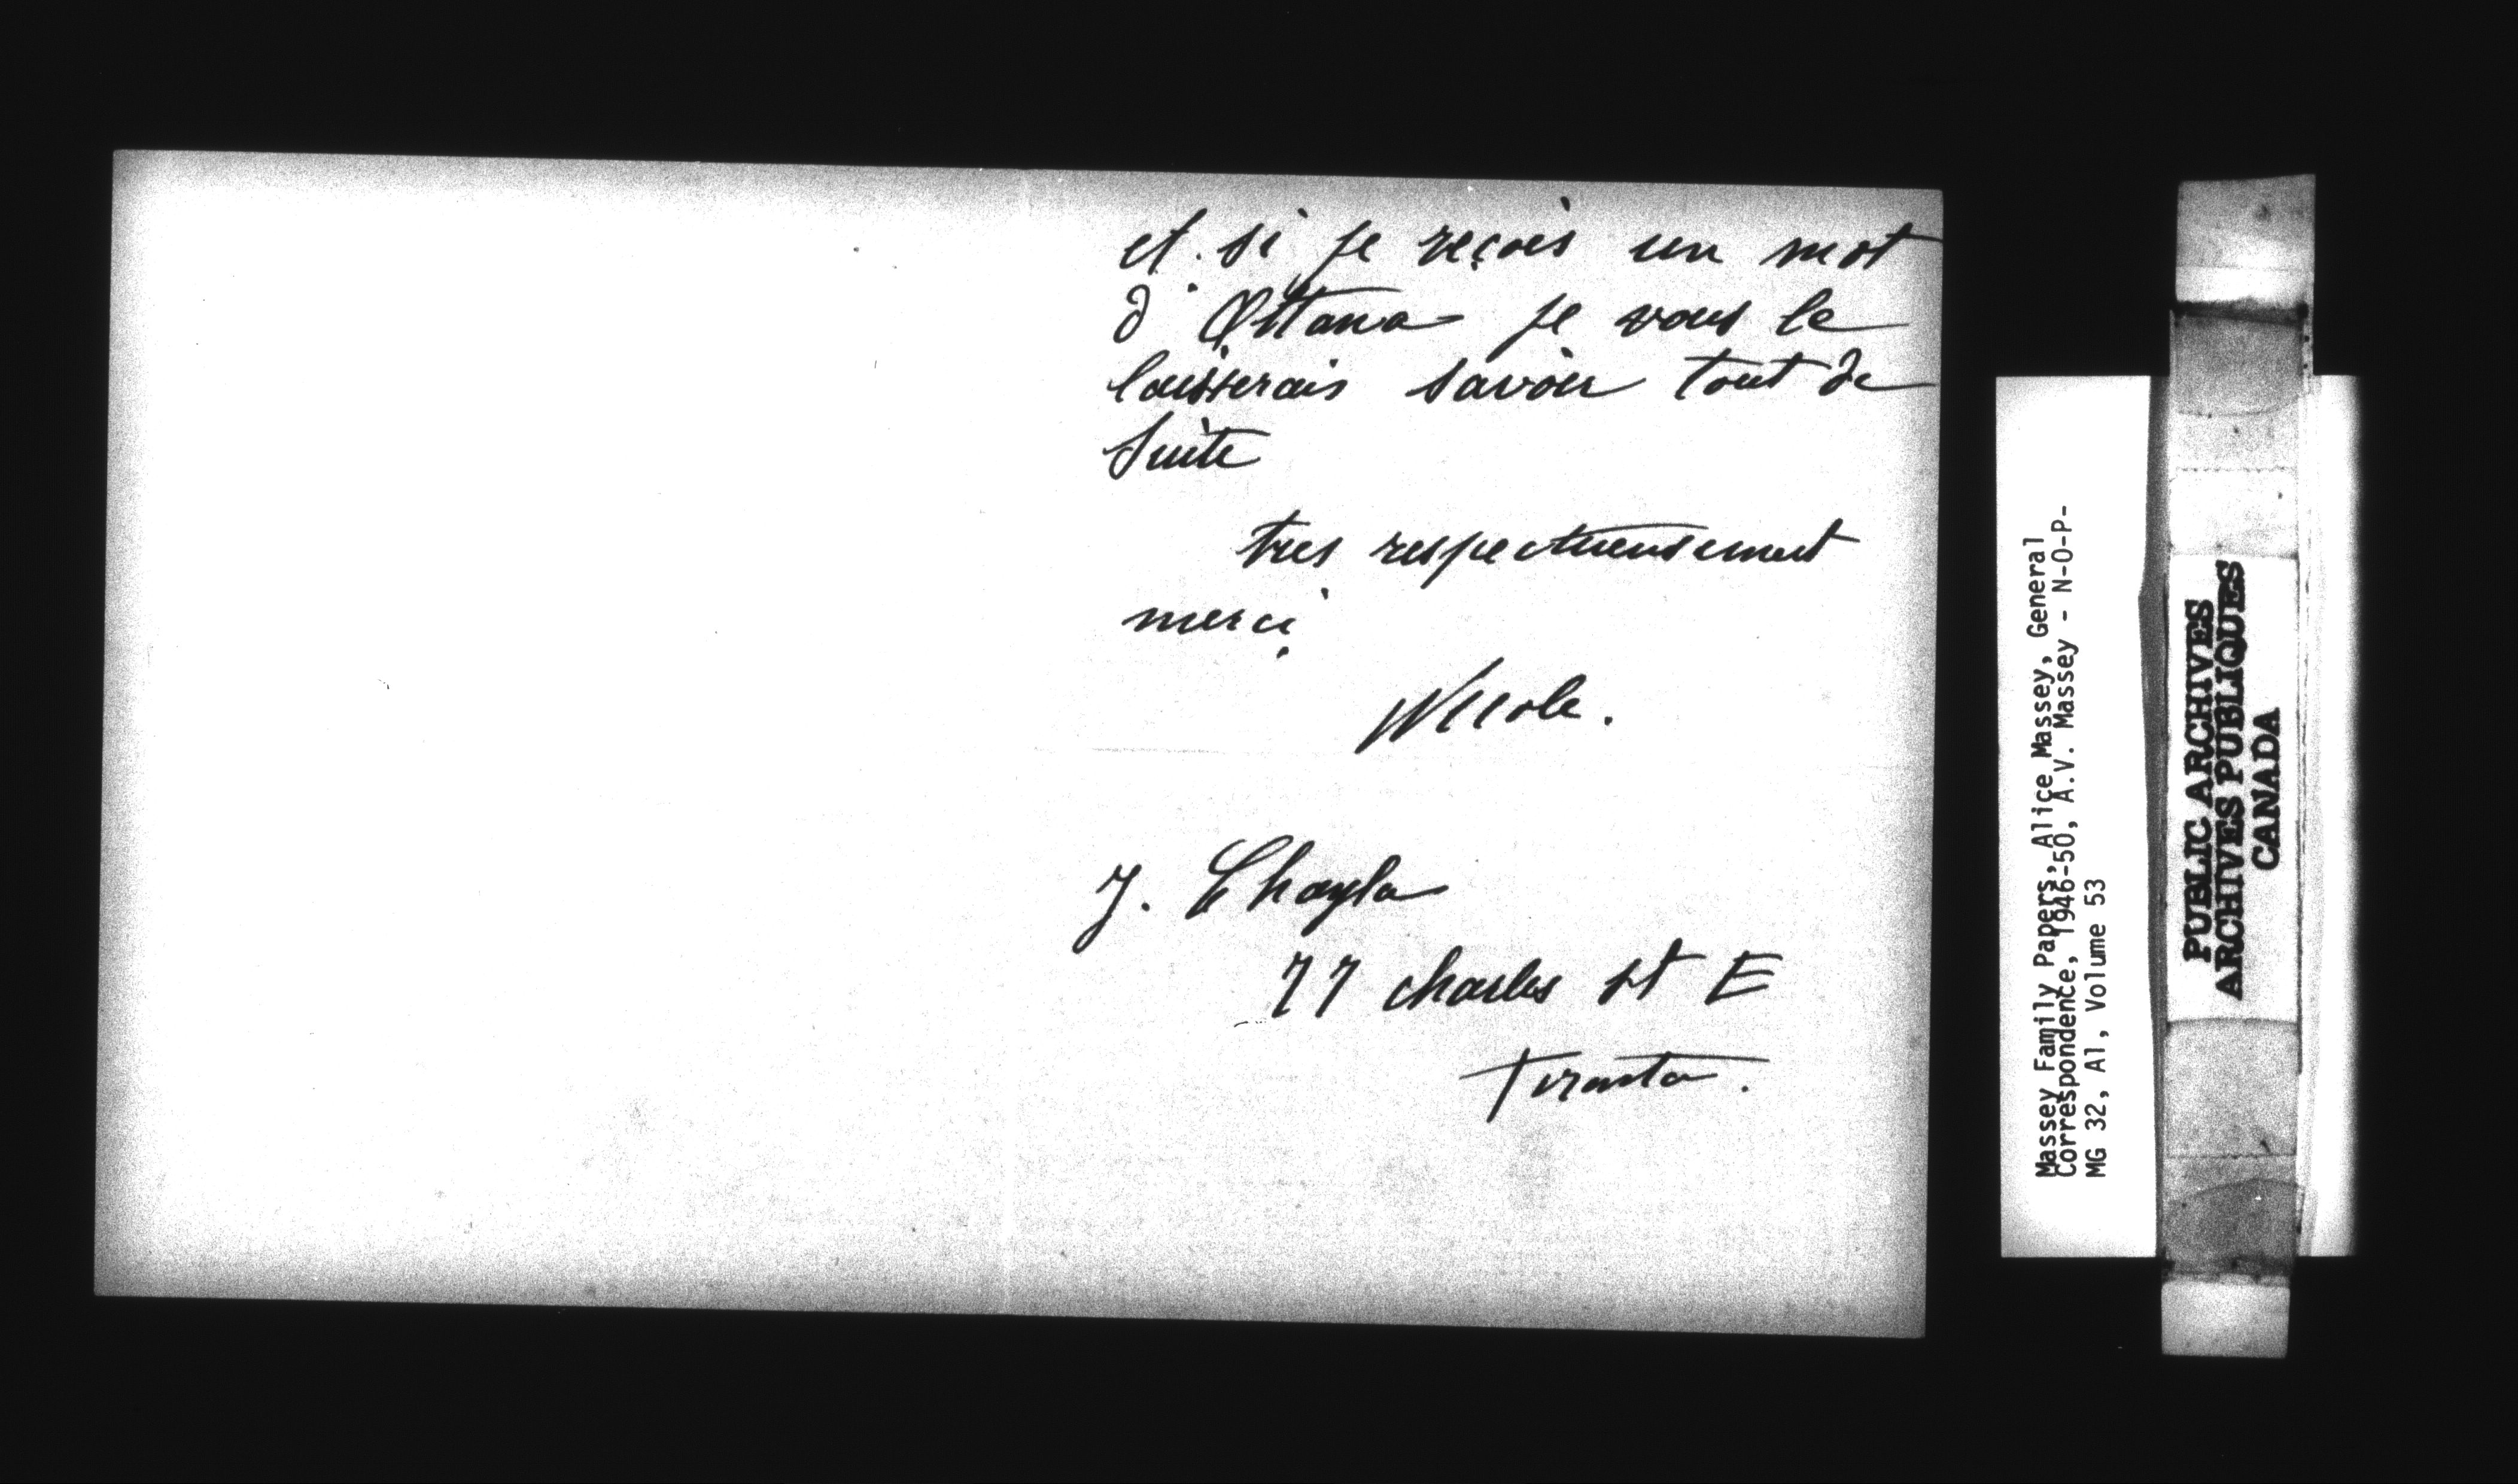 et si je reçois un mot
d'Ottawa je vous le
laisserais savoir tout de
suite
tres respectueusement
merci
Nicole.
J. Chayla
77 charles st E
Toronto.
Massey Family Papers, Alice Massey, General
Correspondence, 1946-50, A.V. Massey - N-O-P-
MG 32, A1, Volume 53
PUBLIC ARCHIVES
ARCHIVES PUBLIQUES
CANADA